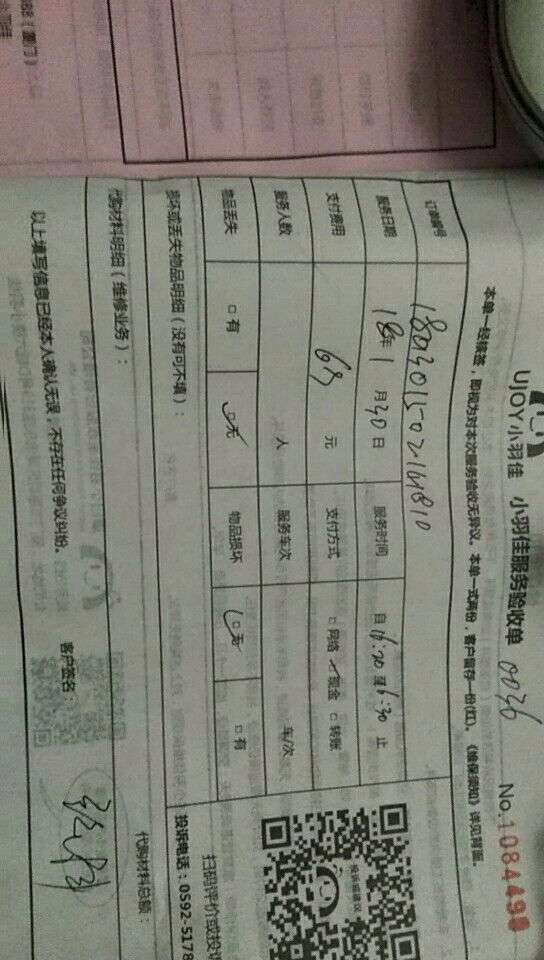 UJOY小羽佳 小羽佳服务验收单 0036 No.1084499
本单一经接签，即视为对本次服务验收无异议。本单一式两份，客户留存一份(红)。《维保须知》详见背面。
订单编号
服务日期 18年1月30日 服务时间 自16:20至16:30止
支付费用 元 支付方式 □网络 现金 □转账
服务人数 人 服务车次 车/次
物品丢失 □有 □无 物品损坏 □无 □有
损坏或丢失物品明细（没有可不填）：
代购材料明细（维修业务）：
代购材料总额：
以上填写信息已经本人确认无误，不存在任何争议纠纷。
客户签名：
投诉或建议
扫码评价或投诉
投诉电话：0592-5178